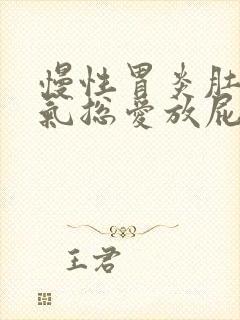 慢性胃炎肚
氣総愛放屁
王君